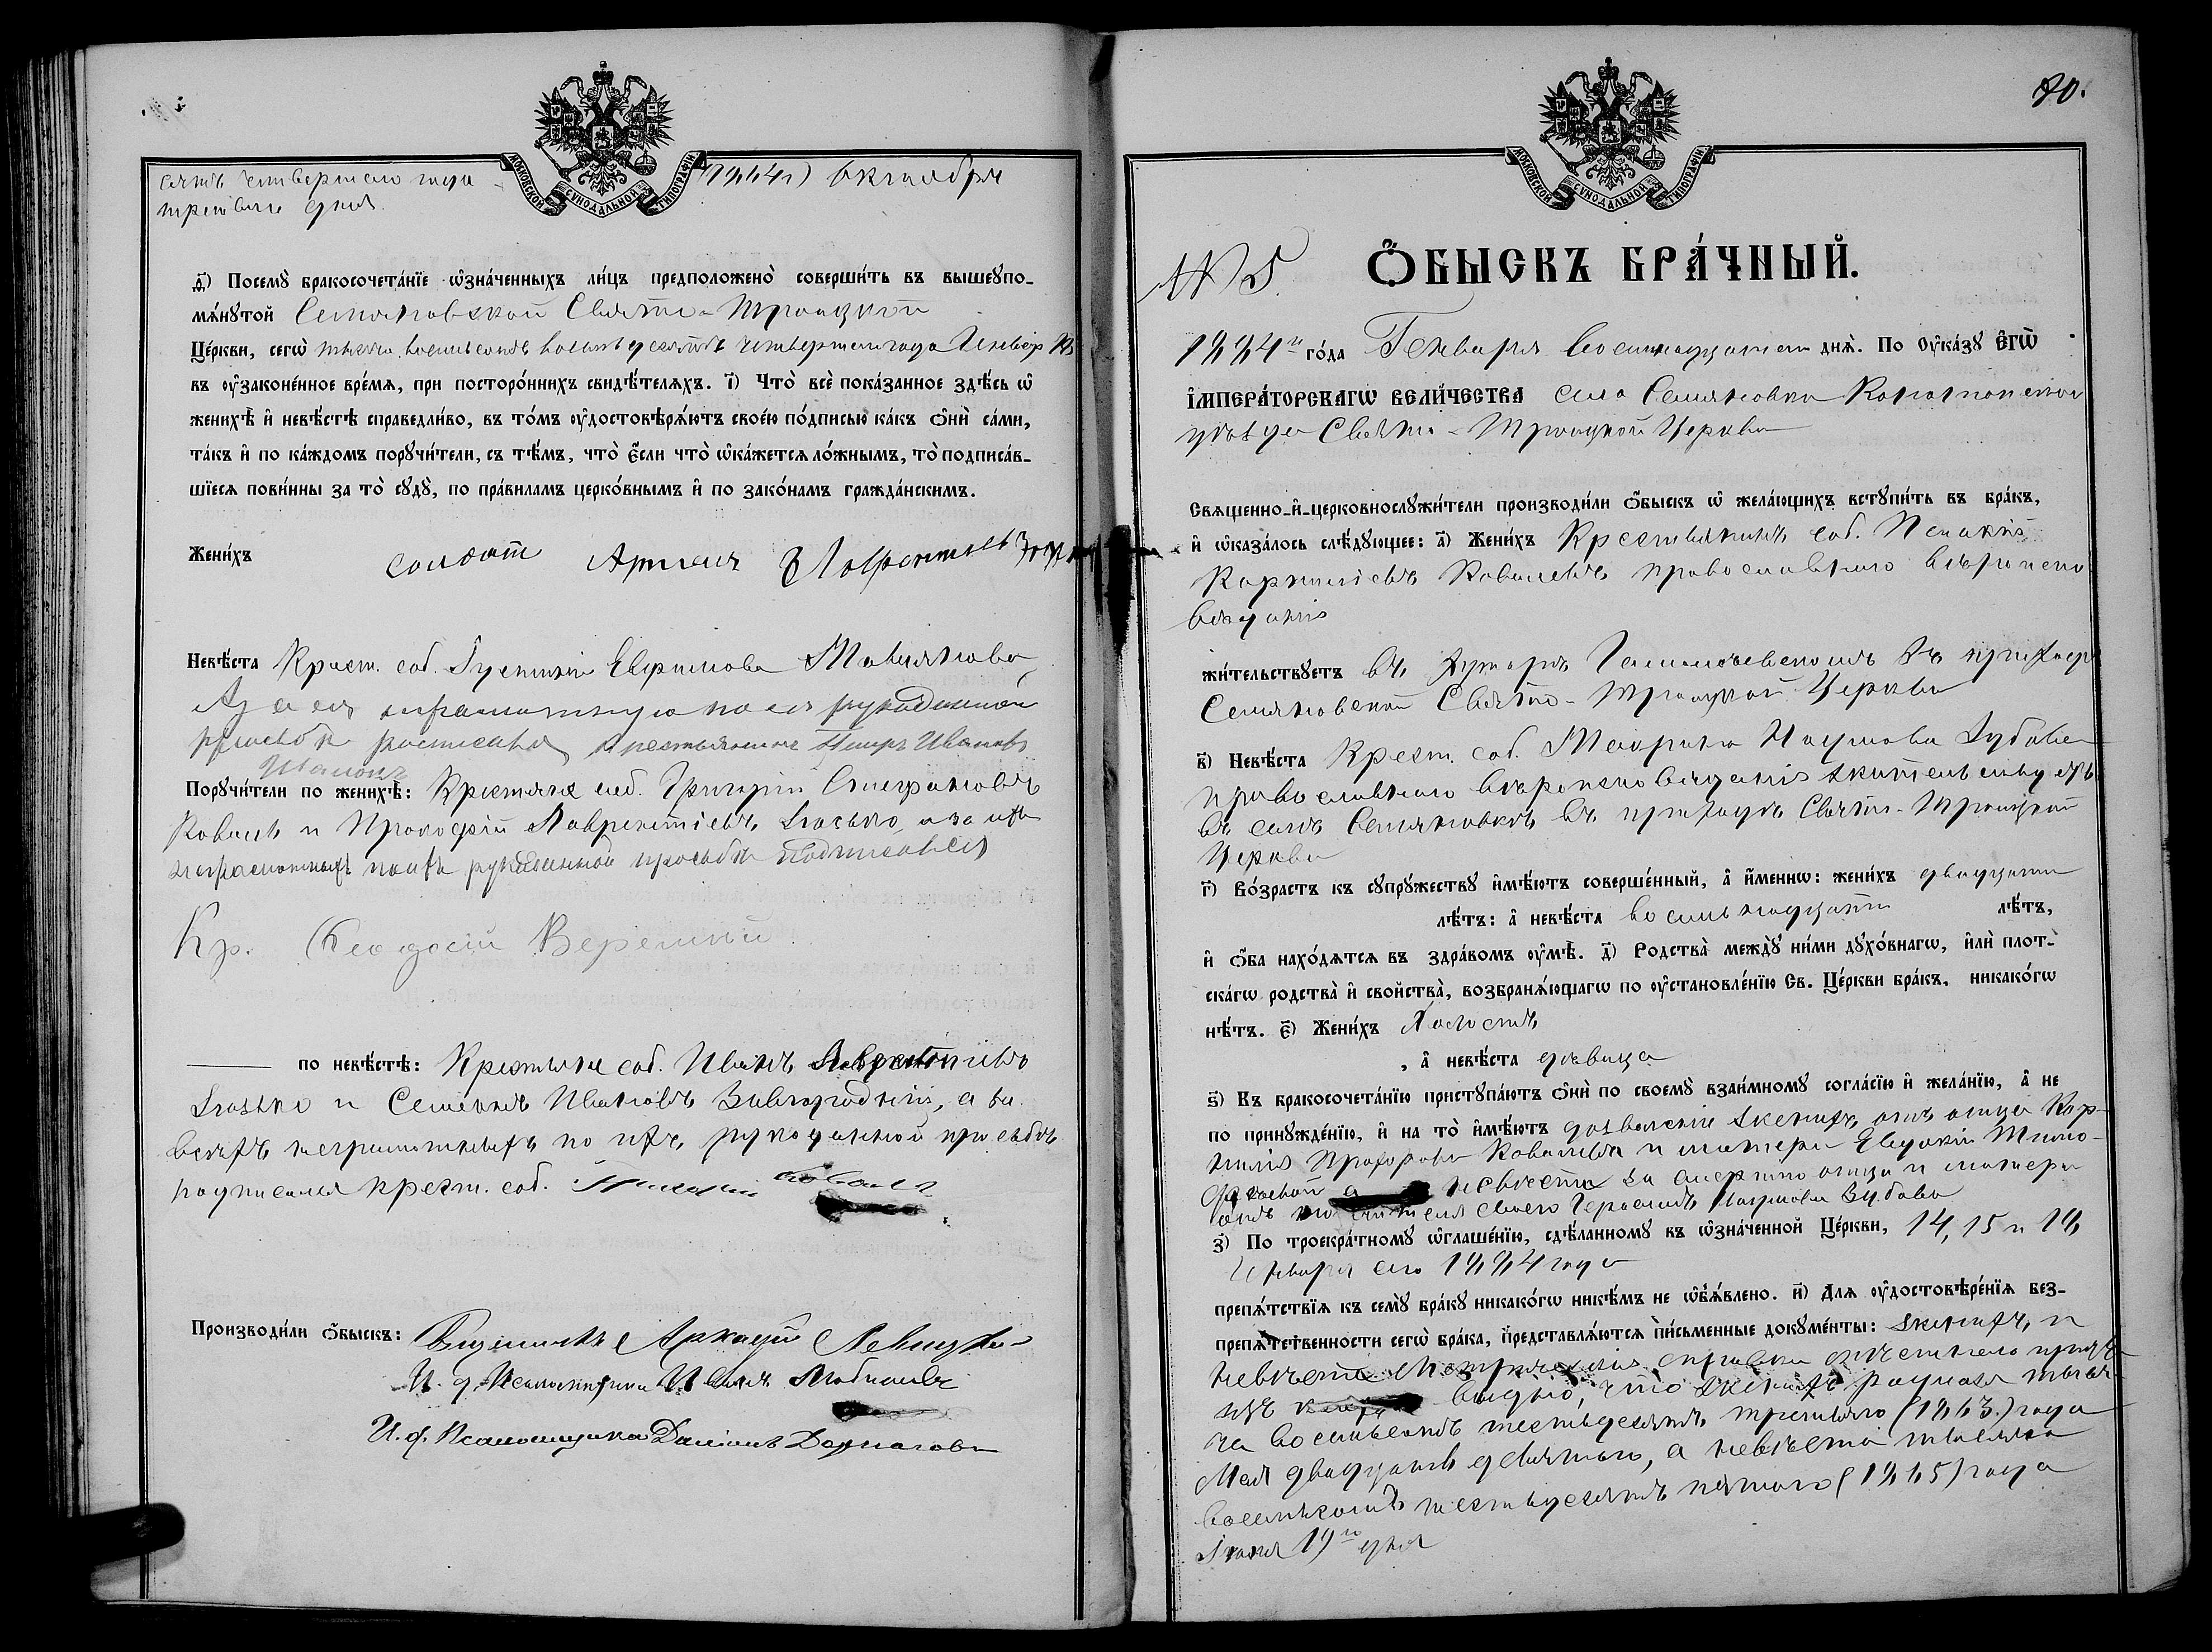 сятъ четвертаго года (1864 г) октября
третьяго дня.
МОСКОВСКОЙ СѴНОДАЛЬНОЙ ТИПОГРАФІИ
д҃і) Посемꙋ̀ бракосочета́нїе ѡ҆зна́ченныхъ ли́цъ предположено̀ соверши́ть въ вышеꙋпо-
мѧ́нꙋтой Семяновской Свято-Троицкой
Це́ркви, сегѡ̀ тысяча восемьсотъ восемьдесятъ четвертаго года Января
въ ᲂу҆зако́ненное вре́мѧ, при посторо́ннихъ свидѣ́телѧхъ. і҃) Что̀ всѐ пока́занное здѣ́сь ѡ҆
женихѣ̀ и҆ невѣ́стѣ справедли́во, въ то́мъ ᲂу҆достовѣрѧ́ютъ свое́ю по́дписью ка́къ ѻ҆нѝ са́ми,
та́къ и҆ по ка́ждомъ порꙋчи́тели, съ тѣ́мъ, что̀ є҆́сли что̀ ѡ҆ка́жетсѧ ло́жнымъ, то̀ подписа́в-
шїесѧ пови́нны за то̀ сꙋдꙋ̀, по пра́виламъ церко́внымъ и҆ по зако́намъ гражда́нскимъ.
Жени́хъ солдат Артемъ Лаврентьевъ
Невѣ́ста Крест. соб. Евфимова
А за ея неграмотную по ея рукоданной
просьбѣ росписался крестьянинъ Петръ Ивановъ
Порꙋчи́тели по женихѣ̀: Крестьяне соб. Григорій Стефановъ
Коваль и Прокофій Лаврентіевъ а за ихъ
неграмотныхъ поихъ рукоданной просьбѣ подписался
Кр. Феодосій
по невѣ́стѣ: Крестьяне соб. Иванъ Лаврентіевъ
и Семенъ Ивановъ Завгородній, а за
всѣхъ неграмотныхъ по ихъ рукоданной просьбѣ
подписался крест. соб. Коваль
Производи́ли ѻ҆́быскъ: Священникъ Аркадій Левицкій
И. д. Псаломщика Иванъ
И. д. Псаломщика
80.
МОСКОВСКОЙ СѴНОДАЛЬНОЙ ТИПОГРАФІИ
№ 5. Ѻ҆́БЫСКЪ БРА́ЧНЫЙ.
1884 го го́да Генваря восемнадцатаго днѧ̀. По ᲂу҆ка́зꙋ Є҆гѡ̀
І҆мпера́торскагѡ Вели́чества села Семяновки Константиноградскаго
уѣзда Свято-Троицкой Церкви
Свѧщенно-и҆-церковнослꙋжи́тели производи́ли ѻ҆́быскъ ѡ҆ жела́ющихъ встꙋпи́ть въ бра́къ,
и҆ ѡ҆каза́лось слѣ́дꙋющее: а҃) Жени́хъ Крестьянинъ соб.
Корниліевъ Ковалевъ православнаго вѣроиспо
вѣданія
жи́тельствꙋетъ въ хуторѣ въ приходѣ
Семяновской Свято-Троицкой Церкви
в҃) Невѣ́ста Крест. соб. Наумова Зубова
православнаго вѣроисповѣданія жительствуетъ
въ селѣ Семяновкѣ въ приходѣ Свято-Троицкой
Церкви
г҃) Во́зрастъ къ сꙋпрꙋ́жествꙋ и҆мѣ́ютъ соверше́нный, а҆̀ и҆́меннѡ: жени́хъ двадцати
лѣ́тъ: а҆̀ невѣ́ста восемнадцати лѣ́тъ,
и҆ ѻ҆́ба нахо́дѧтсѧ въ здра́вомъ ᲂу҆мѣ̀. д҃) Родства̀ междꙋ̀ ни́ми дꙋхо́внагѡ, и҆лѝ плот-
ска́гѡ родства̀ и҆ сво́йства̀, возбранѧ́ющагѡ по ᲂу҆становле́нїю Св. Це́ркви бра́къ, никако́гѡ
нѣ́тъ. є҃) Жени́хъ Холостъ
, а҆̀ невѣ́ста дѣвица
ѕ҃) Къ бракосочета́нїю пристꙋпа́ютъ ѻ҆нѝ по своемꙋ̀ взаи́мномꙋ согла́сїю и҆ жела́нїю, а҆̀ не
по принꙋжде́нїю, и҆ на то̀ и҆мѣ́ютъ дозволеніе женихъ отъ отца Кор-
нилія Прохорова Ковалева и матери Евдокіи Тимо-
феевой а невѣста за смертію отца и матери
отъ своего Наумова Зубова
з҃) По троекра́тномꙋ ѡ҆глаше́нїю, сдѣ́ланномꙋ въ ѡ҆зна́ченной Це́ркви, 14, 15 и 18
Января сего 1884 года
препѧ́тствїѧ къ семꙋ̀ бра́кꙋ никако́гѡ никѣ́мъ не ѡ҆б̾ѧ́влено. и҃) Длѧ ᲂу҆достовѣре́нїѧ без-
препѧ́тственности сегѡ̀ бра́ка, представлѧ́ютсѧ пи́сьменные докꙋме́нты: женихъ и
невѣста Метрическія справки
изъ видно, что женихъ родился тыся-
ча восемьсотъ шестьдесятъ третьяго (1863.) года
Мая двадцать девятого, а невѣста тысяча
восемьсотъ шестьдесятъ пятаго (1865) года
Іюня 19 го дня